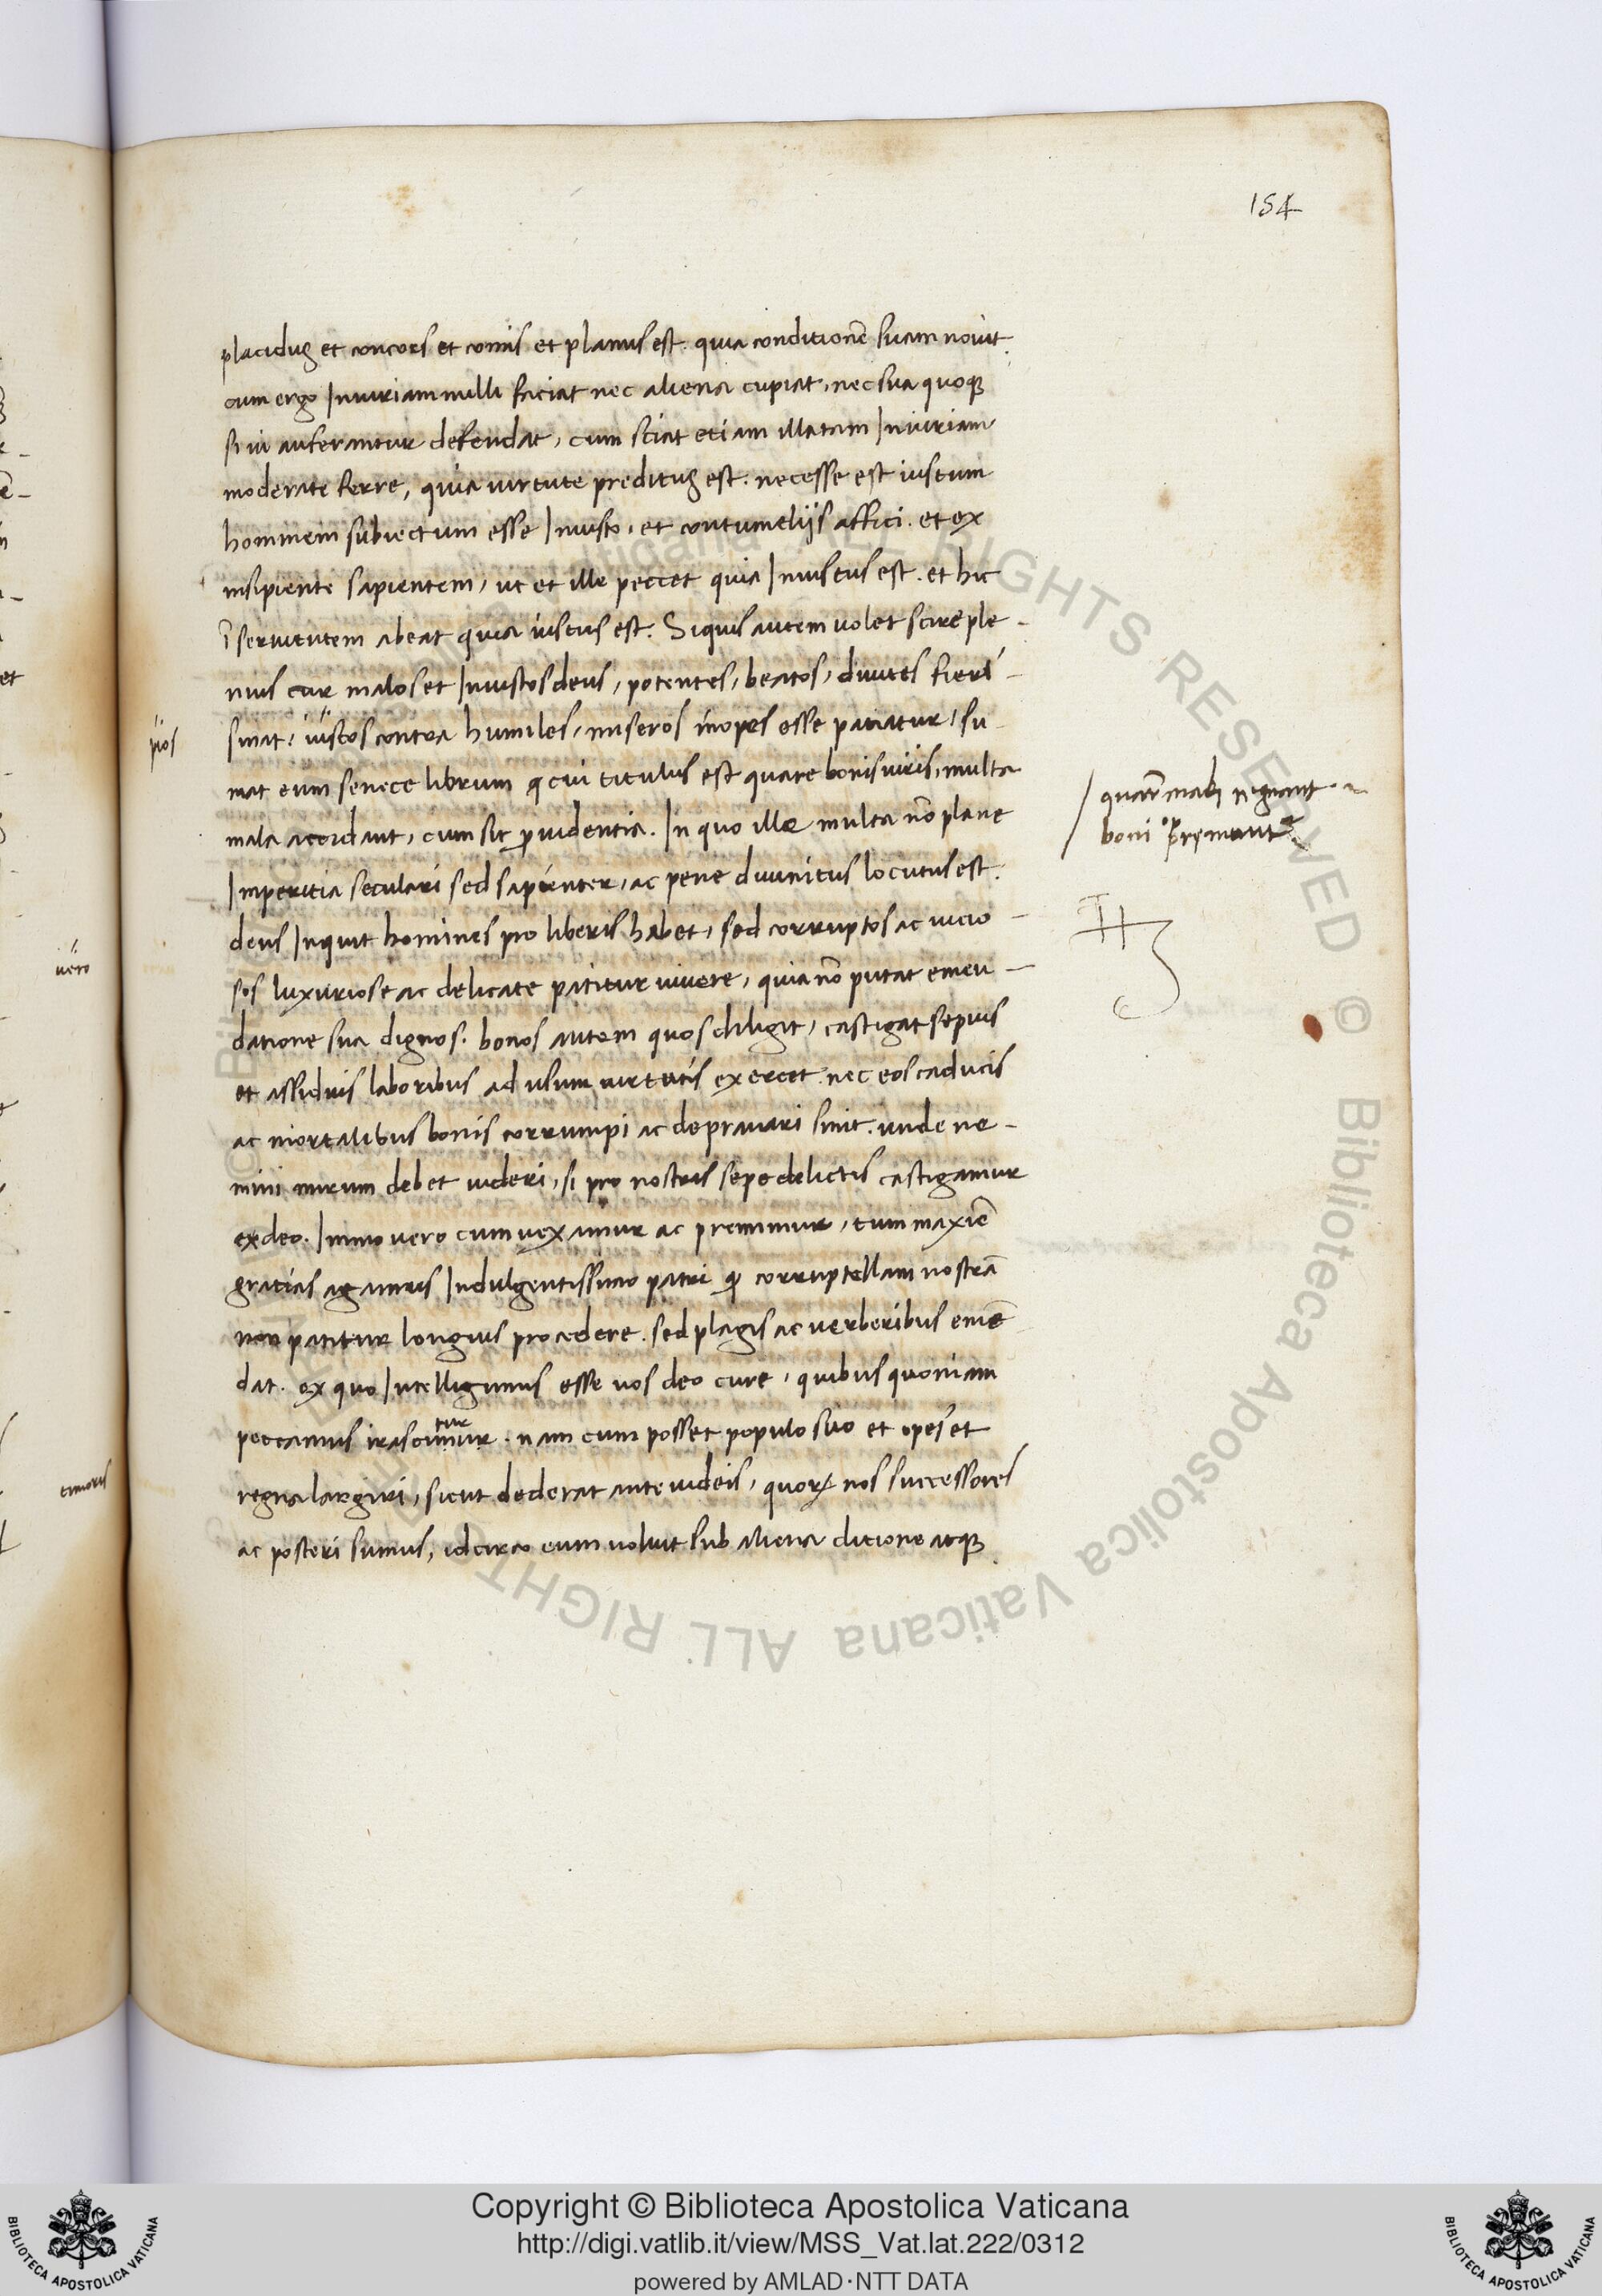 154
placidus et concors et comis et planus est. quia conditionē suam nouit.
cum ergo Iniuriam nulli faciat nec aliena cupiat, nec sua quoque
si ui auferantur defendat, cum sciat etiam illatam Iniuriam
moderate ferre, quia uirtute preditus est. necesse est iustum
hominem subiectum esse Iniusto, et contumelijs affici. et ex
insipiente sapientem, ut et ille peccet quia Iniustus est. et hic
ī seruitutem abeat quia iustus est. Siquis autem uolet scire ple-
nius cur malos et Iniustos deus, potentes, beatos, diuites fieri-
sinat, iustos contra humiles, miseros inopes esse patiatur, su-
pios
mat eum senece librum cui titulus est quare bonis uiris, multa
mala accidant, cum sit prouidentia. In quo ille multa nō plane
quare mali regnant
boni premant
Imperitia seculari sed sapienter, ac pene diuinitus locutus est.
deus Inquit homines pro liberis habet, sed corruptos ac uicio-
sos luxuriose ac delicate patitur uiuere, quia nō putat emen-
datione sua dignos. bonos autem quos diligit, castigat sepius
et assiduis laboribus ad usum uirtutis exercet. nec eos caducis
ac mortalibus bonis corrumpi ac deprauari sinit. unde ne-
mini mirum debet uideri, si pro nostris sepe delictis castigamur
ex deo. Immo uero cum uexamur ac premimur, tum maxīe
gratias agamus Indulgentissimo patri quod corruptellam nostrā
non patitur longius procedere. sed plagis ac uerberibus emē
dat. ex quo Intelligimus esse nos deo cure, quibus quoniam
tur
peccamus irascimur. nam cum posset populo suo et opes et
regna largiri, sicut dederat ante iudeis, quorum nos successores
ac posteri sumus, idcirco eum uoluit sub aliena ditione atque
uero
Copyright © Biblioteca Apostolica Vaticana
http://digi.vatlib.it/view/MSS_Vat.lat.222/0312
powered by AMLAD·NTT DATA
BIBLIOTECA APOSTOLICA VATICANA
BIBLIOTECA APOSTOLICA VATICANA
© Biblioteca Apostolica Vaticana ALL RIGHTS RESERVED © Biblioteca Apostolica Vaticana ALL RIGHTS RESERVED